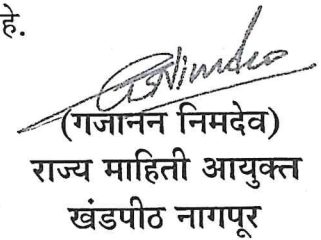 हे.
(गजानन निमदेव)
राज्य माहिती आयुक्त
खंडपीठ नागपूर